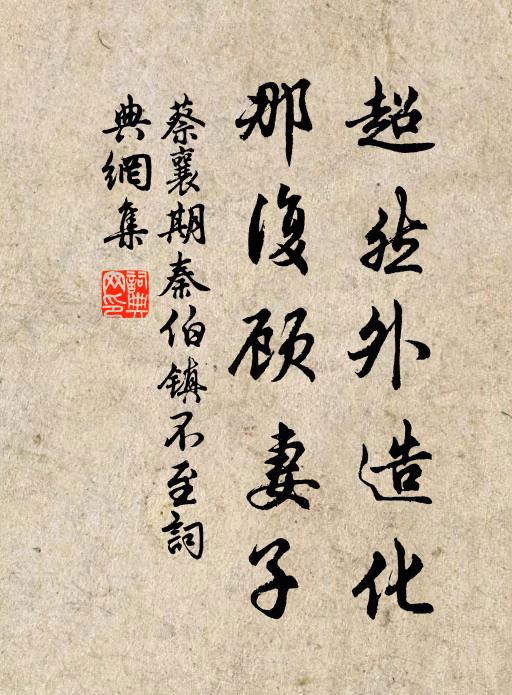 超然外造化
那復顾妻子
蔡襄期秦伯镇不至詞
典網集
詞典
网印